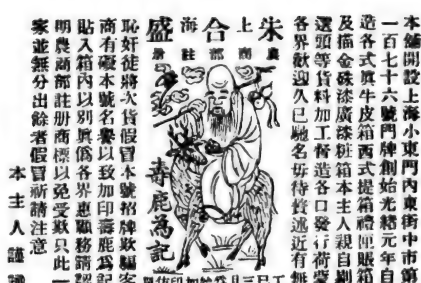 本舖開設上海小東門內東街中市第
一百七十六號門牌創始光緒元年自
造各式眞牛皮箱西式提箱禮匣賬箱
及描金硃漆廣漆粧箱本主人親自剔
選頭等貨料加工督造各口發行荷蒙
各界歡迎久已馳名毋待贅述近有無
盛海合上朱
農商部註册
壽鹿爲記
恥奸徒將次貨假冒本號招牌欺騙客
商有礙本號名譽以致加印壽鹿爲記
貼入箱內以別眞僞各界惠顧務請認
明農商部註册商標以免受欺只此一
家並無分出餘者假冒祈請注意
本主人謹識